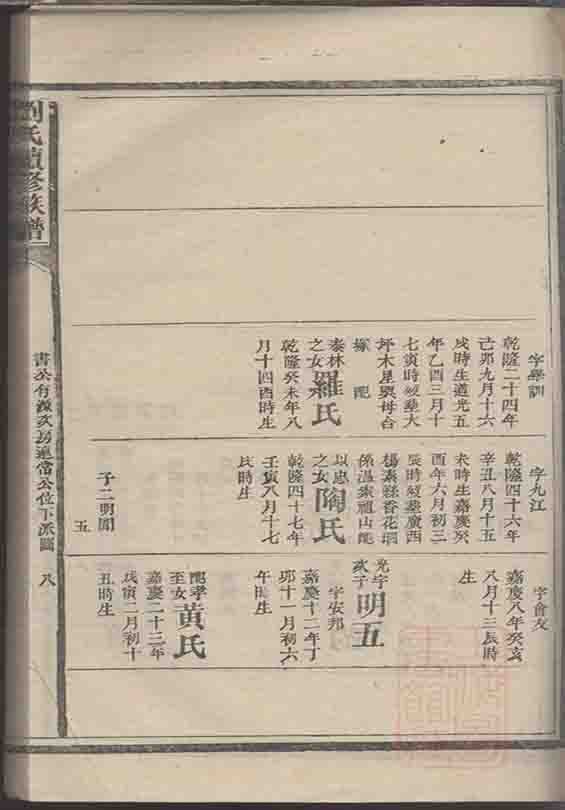 字舉訓
乾隆二十四年
己卯九月十六
戌時生道光五
年乙酉三月十
七寅時歿葬大
坪木星與母合
塚 配
泰林
之女羅氏
乾隆癸未年八
月十四酉時生
字九江
乾隆四十六年
辛丑八月十五
未時生嘉慶癸
酉年六月初三
辰時歿葬廣西
楊素縣香花
係温索祖山
以忠
之女陶氏
乾隆四十七年
壬寅八月十七
辰時生
子二明
五
字會友
嘉慶八年癸亥
八月十三辰時
生
光宇
次子明五
字安邦
嘉慶十二年丁
卯十一月初六
午時生
配孝
至女黃氏
嘉慶二十三年
戊寅二月初十
丑時生
劉氏續修族譜
書公有源次房連當公位下派圖 八